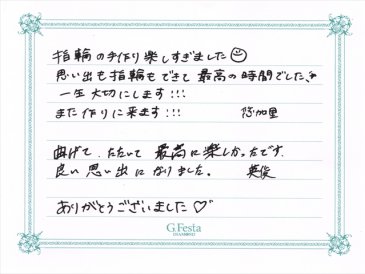 指輪の手作り楽しすぎました☺
思い出も指輪もできて最高の時間でした!!
一生大切にします!!!
また作りに来ます!!! 悠加里
曲げて、たたいて最高に楽しかったです。
良い思い出になりました。 英俊
ありがとうございました♡
G.Festa
DIAMOND